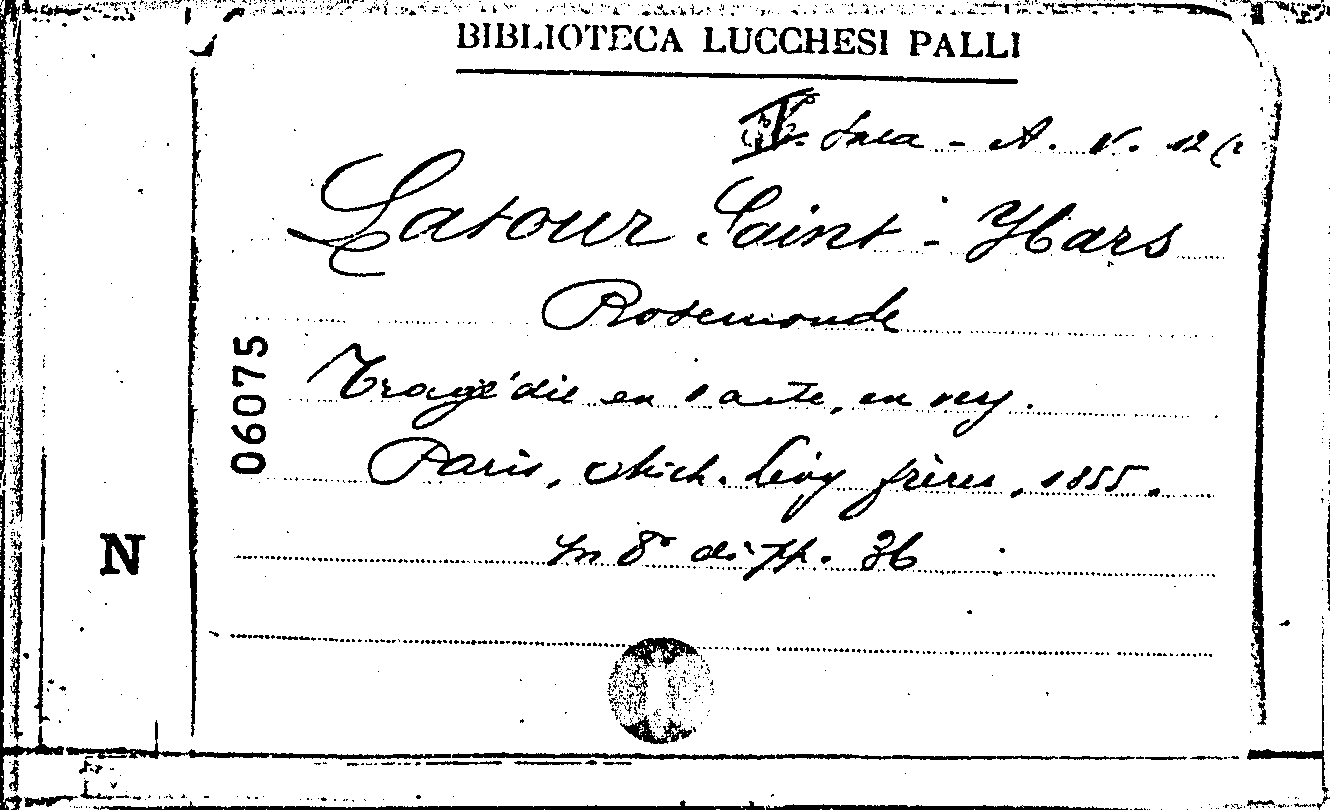 BIBLIOTECA LUCCHESI PALLI
Sala - A. V. 12 (2
Latour Saint-Ybars
Rosemonde
Tragédie en 1 acte, en vers.
Paris, Mich. Lévy frères, 1855.
In 8° di pp. 36
06075
N